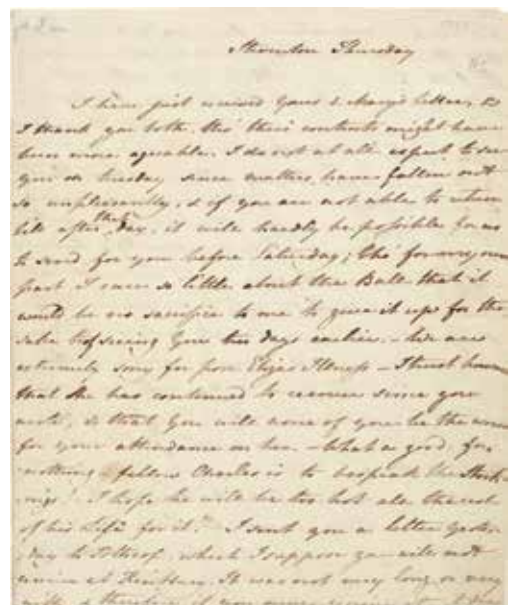 Steventon Thursday
I have just received yours & Mary's letter, &
I thank you both, tho' their contents might have
been more agreable. I do not at all expect to see
you on tuesday since matters have fallen out
so unpleasantly, & if you are not able to return
till after that day, it will hardly be possible for us
to send for you before Saturday; tho' for my own
part I care so little about the Ball that it
would be no sacrifice to me to give it up for the
sake of seeing you two days earlier. - We are
extremely sorry for poor Eliza's Illness - I trust however
that she has continued to recover since you
wrote, & that you will none of you be the worse
for your attendance on her. - What a good-for-
nothing fellow Charles is to bespeak the Stock-
ings! I hope he will be too hot all the rest
of his Life for it! I sent you a letter yester-
day to Ibthrop, which I suppose you will not
receive at Kintbury. It was not very long or very
witty, & therefore if you never receive it